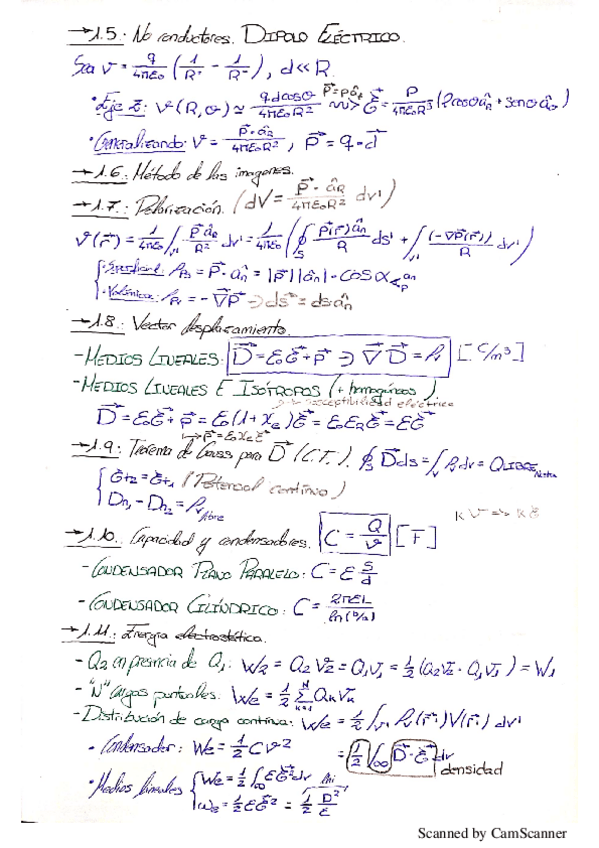 →1.5.: No conductores. DIPOLO ELÉCTRICO.
Sea V = q/4πε₀ (1/R⁺ - 1/R⁻), d << R.
• Eje z: V(R,θ) ≃ qdcosθ/4πε₀R² p⃗=pâz ~> E⃗ = P/4πε₀R³ (2cosθâR + senθâθ)
• Generalizando: V = p⃗·âR/4πε₀R², p⃗ = q·d⃗
→1.6.: Método de las imágenes.
→1.7.: Polarización. (dV = P⃗·âR/4πε₀R² dv')
V(r⃗) = 1/4πε₀ ∫v' P⃗·âR/R² dv' = 1/4πε₀ (∮S P⃗(r⃗)ân/R ds' + ∫v' (-∇P⃗(r⃗))/R dv')
• Superficial: ρps = P⃗·ân = |P⃗||ân|·cos α
• Volúmica: ρpv = -∇P⃗ → ds⃗ = dsân
→1.8.: Vector desplazamiento.
- MEDIOS LINEALES: D⃗ = ε₀E⃗ + P⃗ ⇒ ∇D⃗ = ρv [C/m³]
- MEDIOS LINEALES E ISÓTROPOS (+ homogéneos)
susceptibilidad eléctrica
D⃗ = ε₀E⃗ + P⃗ = ε₀(1+χe)E⃗ = ε₀εRE⃗ = εE⃗
↳ P⃗ = ε₀χeE⃗
→1.9.: Teorema de Gauss para D⃗ (C.T.). ∮S D⃗ds = ∫v ρvdv = QLIBRE Neta
Et2 = Et1 (Potencial continuo)
Dn1 - Dn2 = ρs libre
KV => KE⃗
→1.10.: Capacidad y condensadores. C = Q/V [F]
- CONDENSADOR PLANO PARALELO: C = ε S/d
- CONDENSADOR CILÍNDRICO: C = 2πεL/ln(b/a)
→1.11.: Energía electrostática.
- Q2 en presencia de Q1: W2 = Q2V2 = Q1V1 = 1/2 (Q2V2 · Q1V1) = W1
- "N" cargas puntuales: We = 1/2 Σ(k=1, N) QkVk
- Distribución de carga continua: We = 1/2 ∫v' ρv(r⃗')V(r⃗') dv'
• Condensador: We = 1/2 CV² = 1/2 ∫∞ D⃗·E⃗ dv
densidad
• Medios lineales We = 1/2 ∫∞ εE⃗²dv
we = 1/2 εE⃗² = 1/2 D²/ε
Scanned by CamScanner